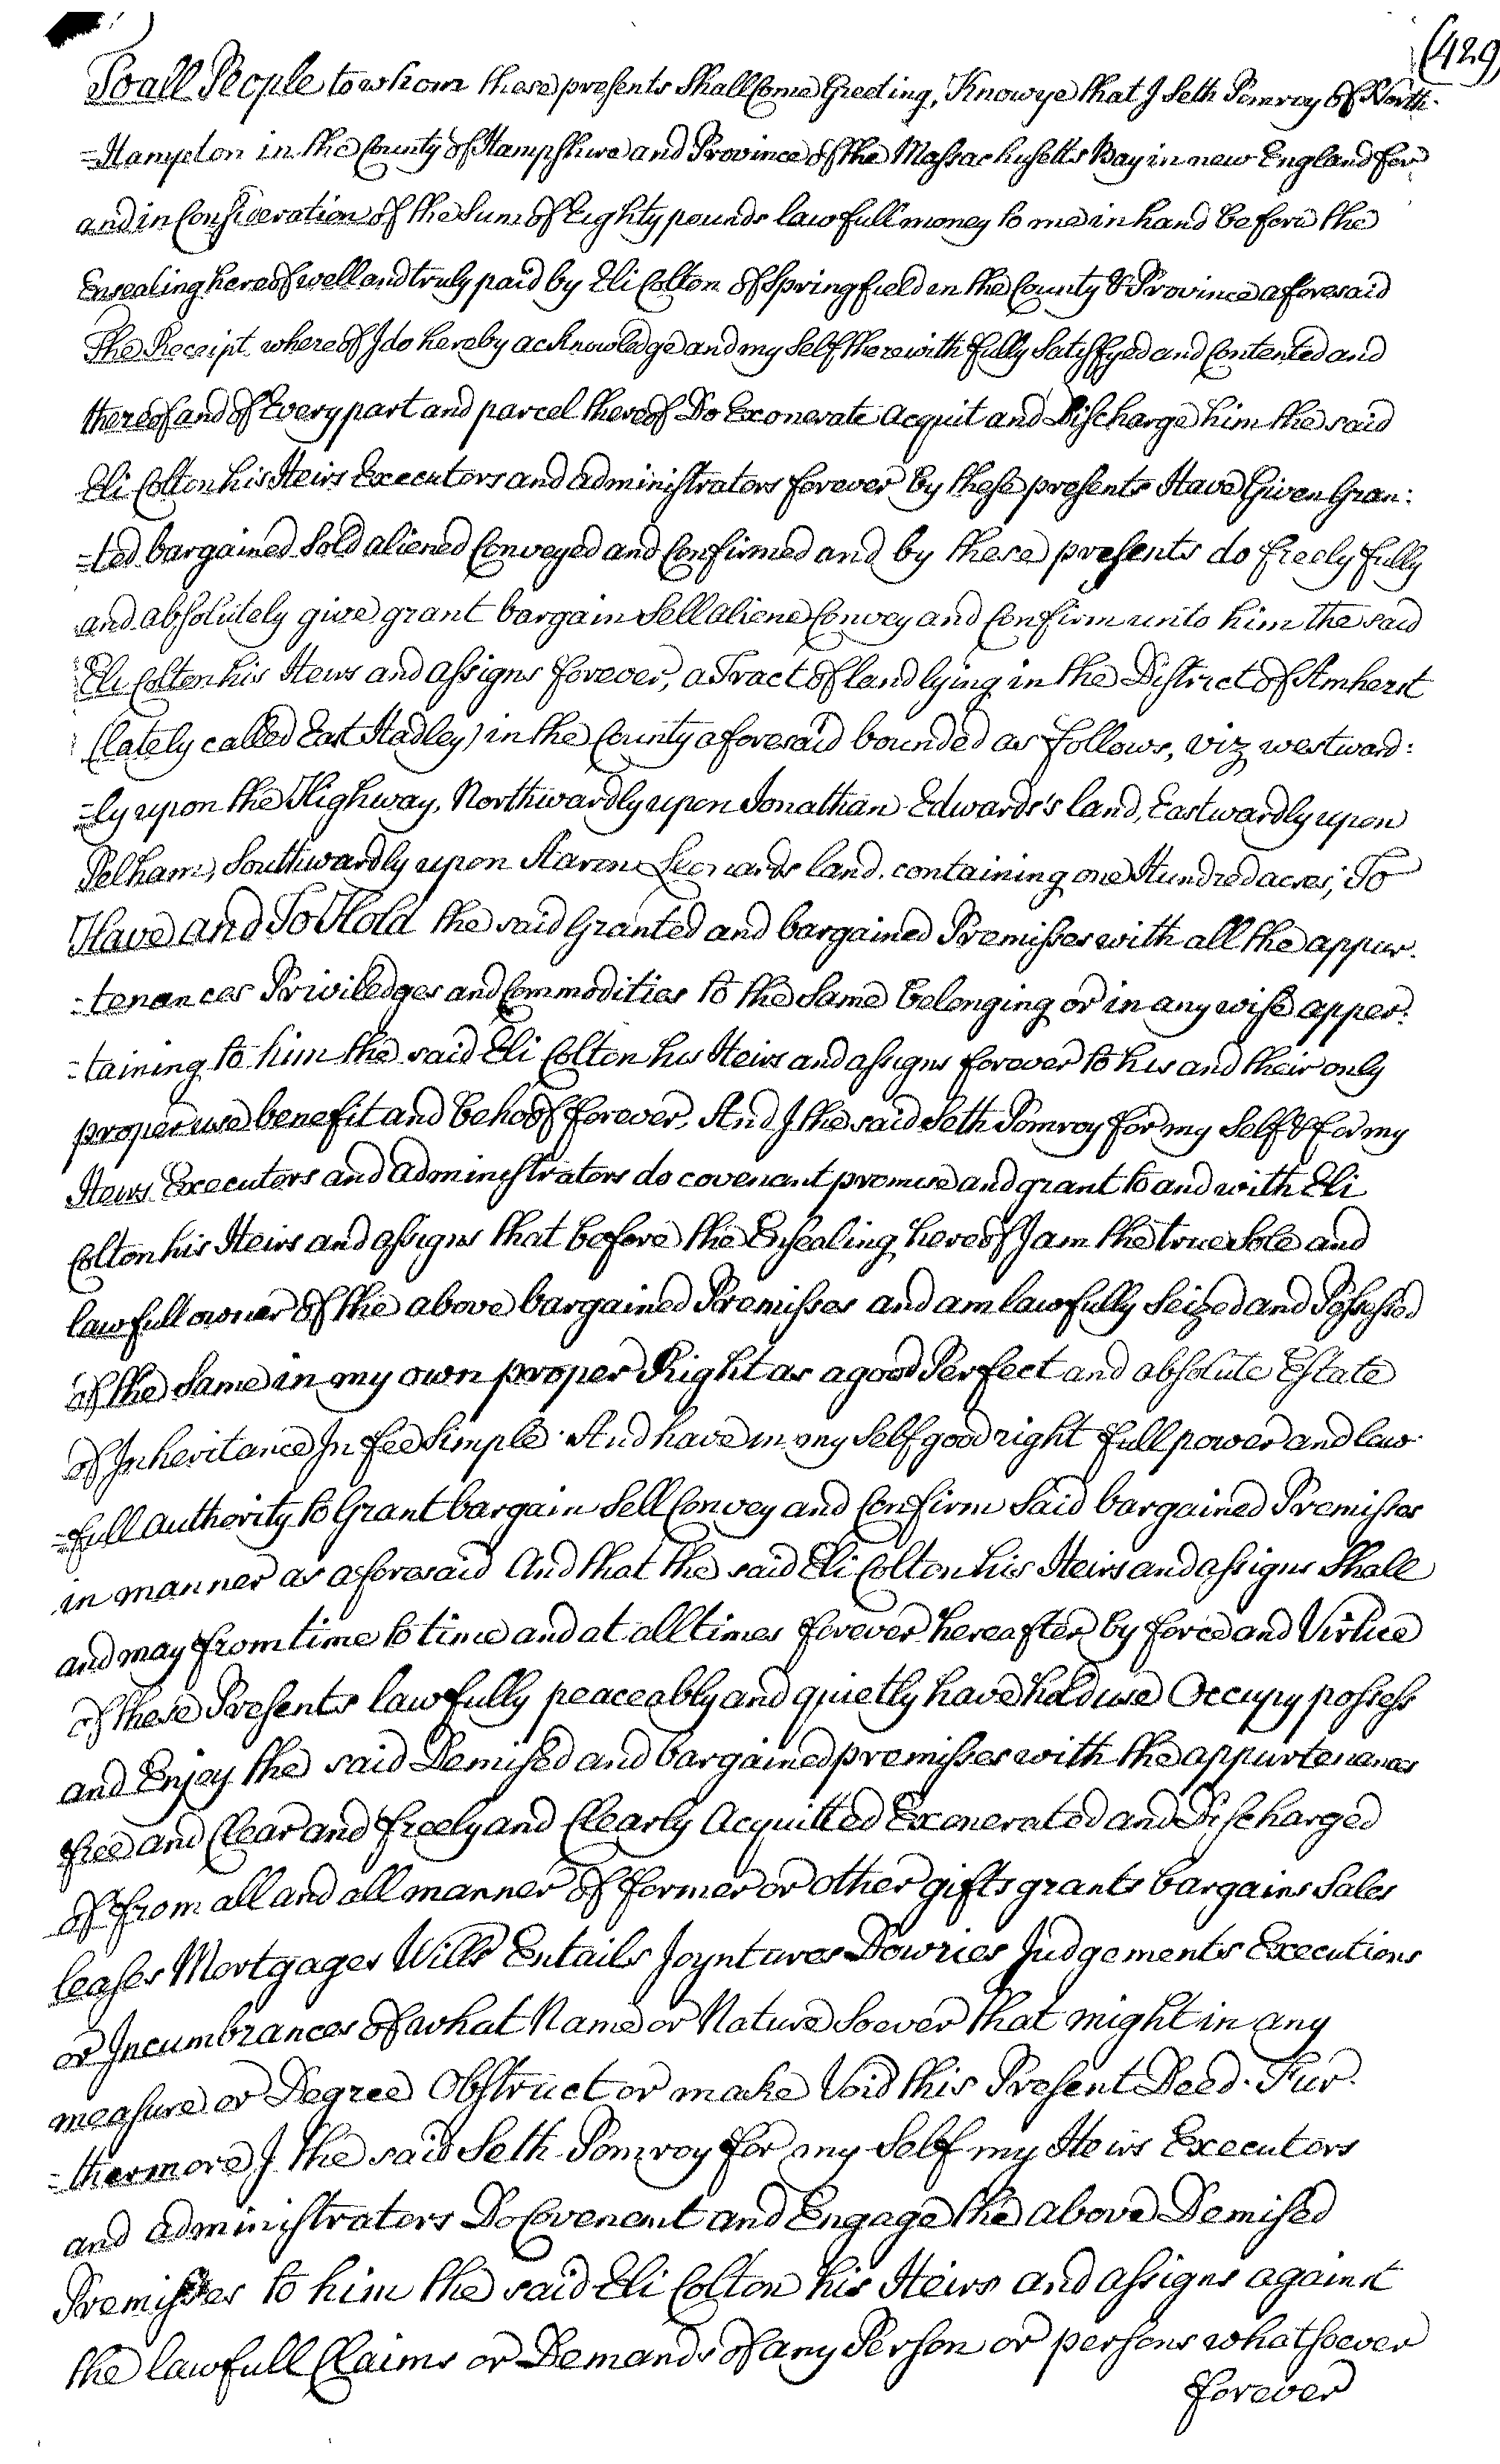 (429
To all People to whom these presents Shall Come Greeting, Know ye that I Seth Pomroy of North-
=Hampton in the County of Hampshire and Province of the Massachusetts Bay in new England for
and in Consideration of the Sum of Eighty pounds lawfull money to me in hand before the
Ensealing hereof well and truly paid by Eli Colton of Springfield in the County & Province aforesaid
The Receipt whereof I do hereby acknowledge and my Self therewith fully Satisfyed and Contented and
thereof and of Every part and parcel thereof Do Exonerate acquit and Discharge him the said
Eli Colton his Heirs Executors and administrators forever by these presents Have Given Gran:
=ted bargained Sold aliened Conveyed and Confirmed and by these presents do freely fully
and absolutely give grant bargain Sell aliene Convey and Confirm unto him the said
Eli Colton his Heirs and assigns forever, a Tract of land lying in the District of Amherst
(lately called East Hadley) in the County aforesaid bounded as follows, viz westward:
=ly upon the Highway, Northwardly upon Jonathan Edwards's land, Eastwardly upon
Pelham, Southwardly upon Aaron Leonards land. containing one Hundred acres; To
Have and To Hold the said Granted and bargained Premisses with all the appur-
=tenances Priviledges and Commodities to the Same belonging or in any wise apper:
=taining to him the said Eli Colton his Heirs and assigns forever to his and their only
proper use benefit and behoof forever. And I the said Seth Pomroy for my Self & for my
Heirs Executors and administrators do covenant promise and grant to and with Eli
Colton his Heirs and assigns that before the Ensealing hereof I am the true Sole and
lawfull owner of the above bargained Premisses and am lawfully Seized and Possessed
of the Same in my own proper Right as a good Perfect and absolute Estate
of Inheritance In fee Simple. And have in my Self good right full power and law-
=full authority to Grant bargain Sell Convey and Confirm Said bargained Premisses
in manner as aforesaid And that the said Eli Colton his Heirs and assigns Shall
and may from time to time and at all times forever hereafter by force and Virtue
of these Presents lawfully peaceably and quietly have hold use Occupy possess
and Enjoy the said Demised and bargained premisses with the appurtenances
free and Clear and freely and Clearly Acquitted Exonerated and Discharged
of from all and all manner of former or other gifts grants bargains Sales
leases Mortgages Wills Entails Joyntures Dowries Judgements Executions
or Incumbrances of what Name or Nature Soever that might in any
measure or Degree Obstruct or make Void this Present Deed. Fur-
=thermore I the said Seth Pomroy for my Self my Heirs Executors
and administrators Do Covenant and Engage the above Demised
Premisses to him the said Eli Colton his Heirs and assigns against
the lawfull Claims or Demands of any Person or persons whatsoever
forever